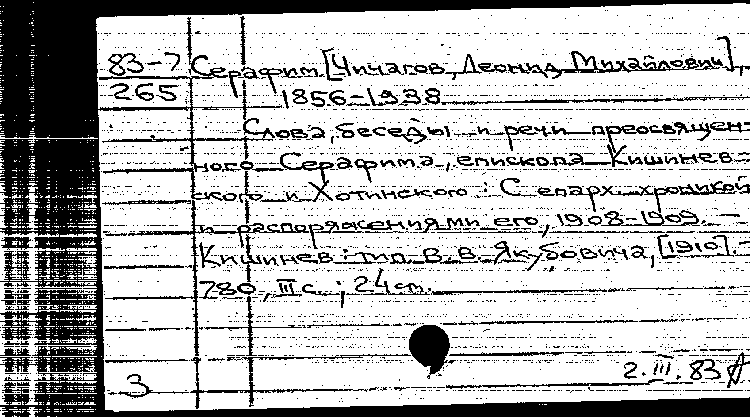 83-7 Серафим [Чичагов, Леонид Михайлович],
265 1856-1938
Слова, беседы и речи преосвящен-
ного Серафима, епископа Кишинев-
ского и Хотинского : С епарх. хроникой
и распоряжениями его, 1908-1909. —
Кишинев : тип. В. В. Якубовича, [1910]. -
780, III с. ; 24 см.
2.III.83
3